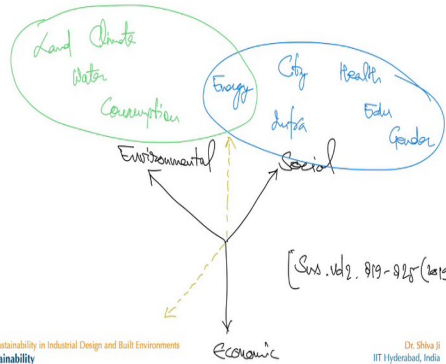 Land Climate
Water
Consumption
Energy
City Health
Infra
Edu
Gender
Environmental
Social
Economic
[Sus. Vol 2. 819-825 (2019
stainability in Industrial Design and Built Environments
ainability
Dr. Shiva Ji
IIT Hyderabad, India